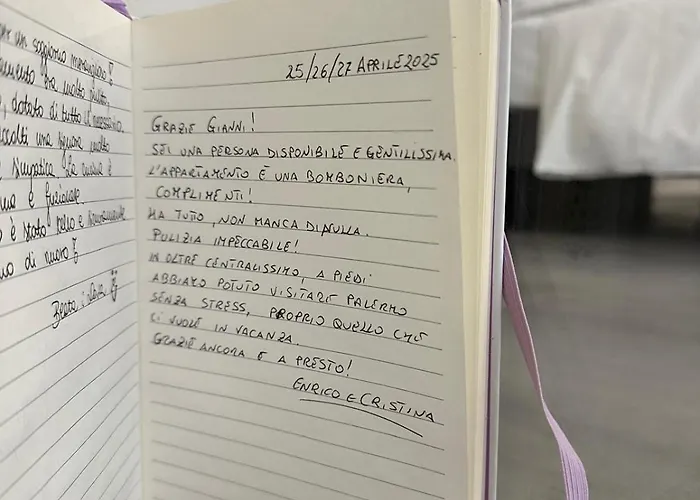 un soggiorno meraviglioso
molto pulito,
, dotato di tutto il necessario.
una signora molto
simpatica la
e funzionale
è stato bello e
di nuovo
25/26/27 APRILE 2025
GRAZIE GIANNI!
SEI UNA PERSONA DISPONIBILE E GENTILISSIMA.
L'APPARTAMENTO È UNA BOMBONIERA,
COMPLIMENTI!
HA TUTTO, NON MANCA DI NULLA.
PULIZIA IMPECCABILE!
IN OLTRE CENTRALISSIMO, A PIEDI
ABBIAMO POTUTO VISITARE PALERMO
SENZA STRESS, PROPRIO QUELLO CHE
CI VUOLE IN VACANZA.
GRAZIE ANCORA E A PRESTO!
ENRICO E CRISTINA